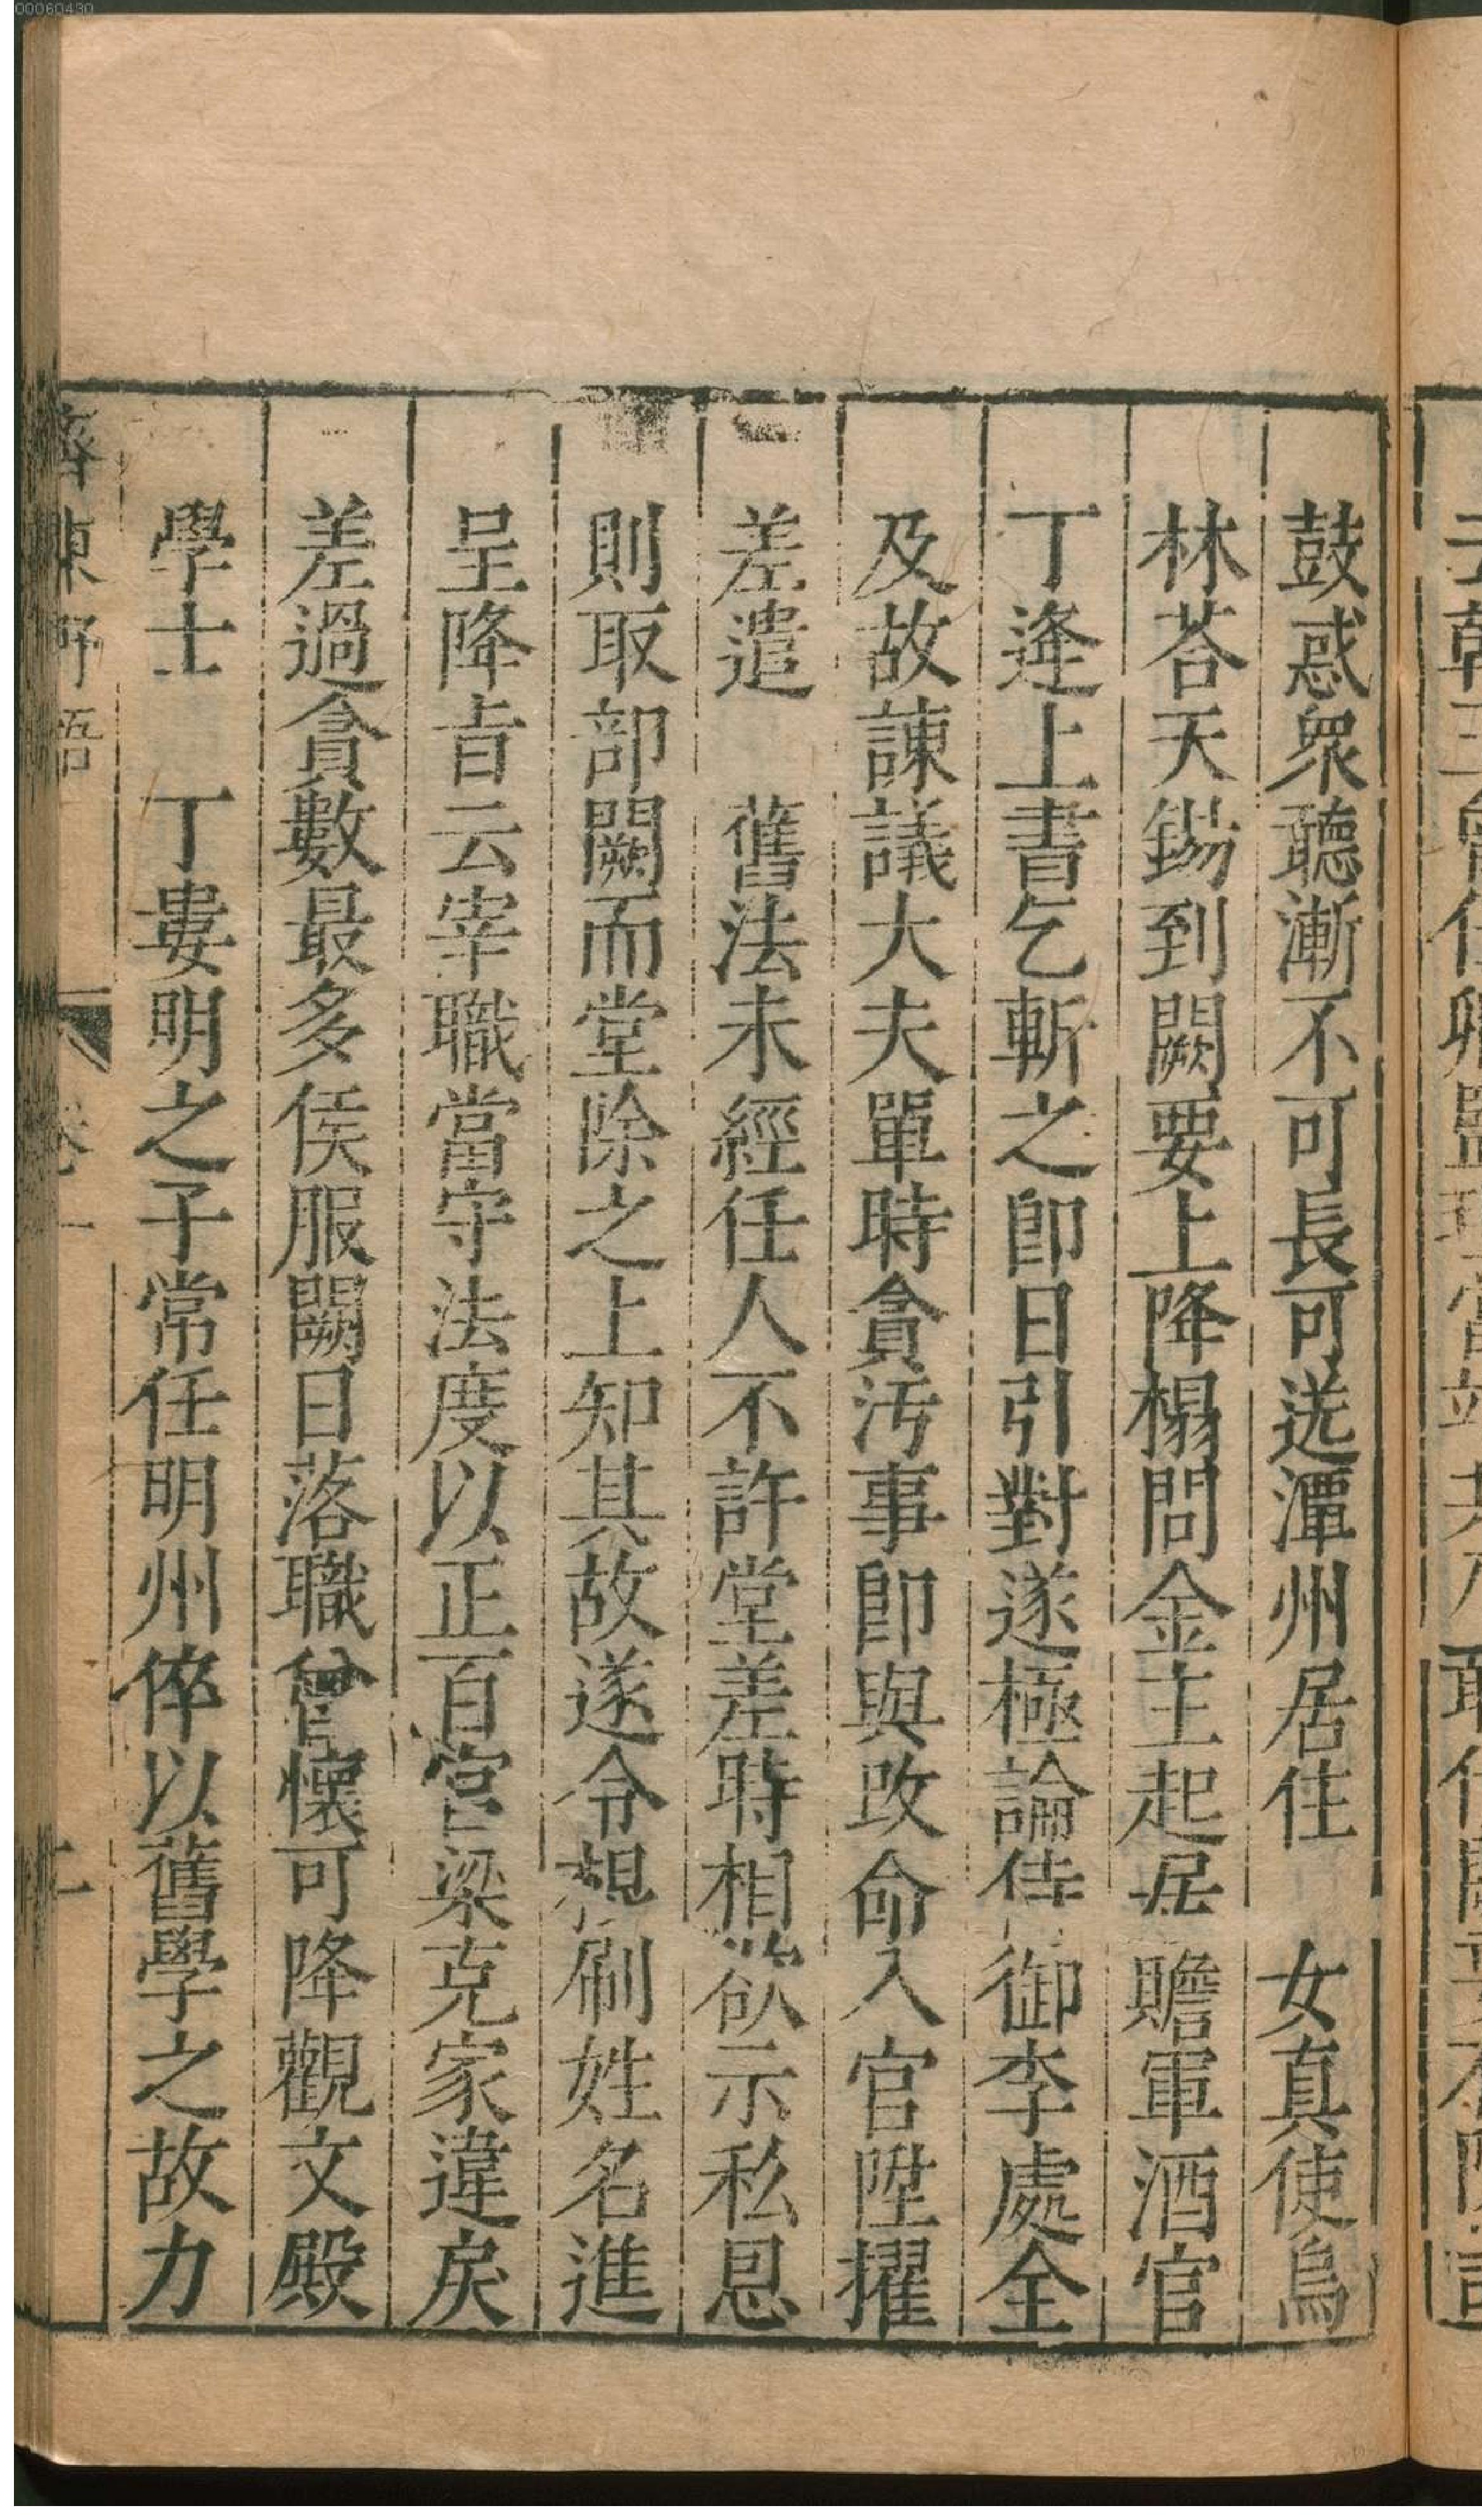 鼓惑衆聽漸不可長可送潭州居住　女真使烏
林荅天錫到闕要上降榻問金主起居贍軍酒官
丁逢上書乞斬之卽日引對遂極論侍御李處全
及故諫議大夫單時貪汚事卽與改命入官陞擢
差遣　舊法未經任人不許堂差時相欲示私恩
則取部闕而堂除之上知其故遂令根刷姓名進
呈降旨云宰職當守法度以正百官梁克家違戾
差過貪數最多侯服闋日落職曾懷可降觀文殿
學士　丁婁明之子常任明州倅以舊學之故力
齊東野語　卷一
00060430